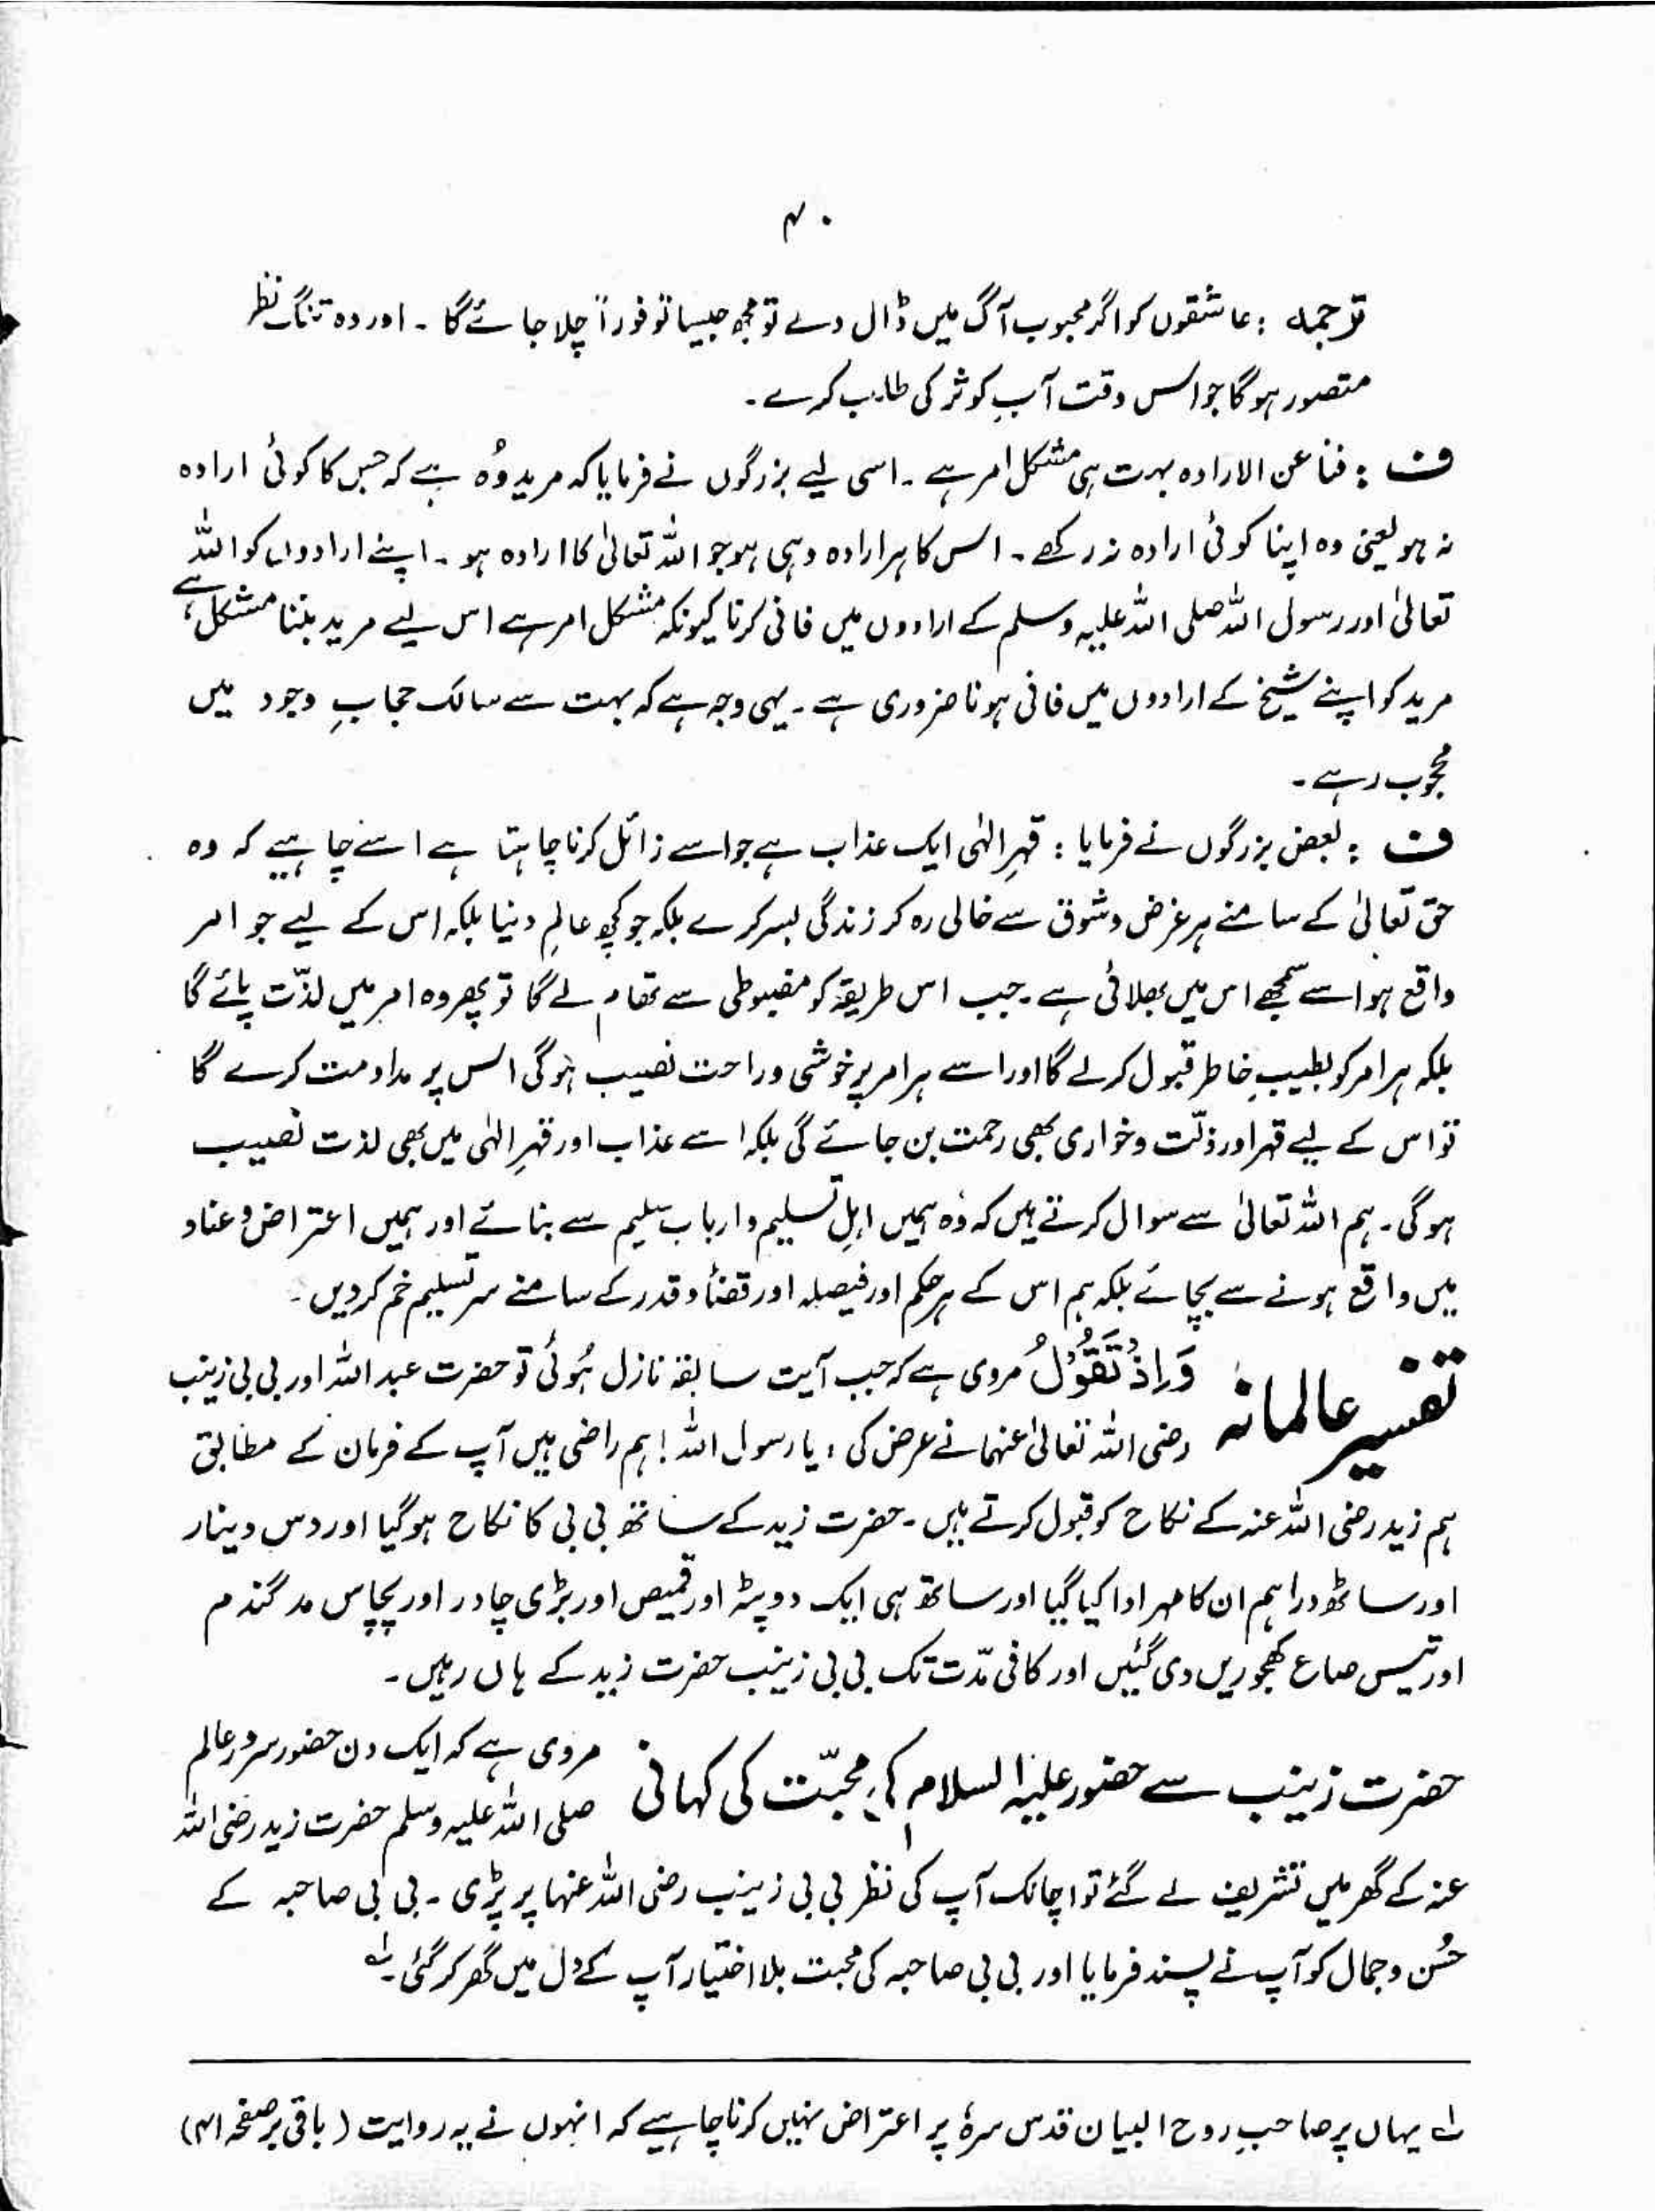 ۴۰
ترجمہ : عاشقوں کو اگر محبوب آگ میں ڈال دے تو مجھ جیسا تو فوراً چلا جائے گا ۔ اور وہ تنگ نظر
متصور ہوگا جو اس وقت آبِ کوثر کی طلب کرے ۔
ف : فنا عن الارادہ بہت ہی مشکل امر ہے ۔ اسی لیے بزرگوں نے فرمایا کہ مرید وُہ ہے کہ جس کا کوئی ارادہ
نہ ہو یعنی وہ اپنا کوئی ارادہ نہ رکھے ۔ اس کا ہر ارادہ وہی ہو جو اللہ تعالیٰ کا ارادہ ہو ۔ اپنے ارادوں کو اللہ
تعالیٰ اور رسول اللہ صلی اللہ علیہ وسلم کے ارادوں میں فانی کرنا کیونکہ مشکل امر ہے اس لیے مرید بننا مشکل ہے ،
مرید کو اپنے شیخ کے ارادوں میں فانی ہونا ضروری ہے ۔ یہی وجہ ہے کہ بہت سے سالک حجابِ وجود میں
محجوب رہے ۔
ف : بعض بزرگوں نے فرمایا : قہرِ الٰہی ایک عذاب ہے جو اسے زائل کرنا چاہتا ہے اسے چاہیے کہ وہ
حق تعالیٰ کے سامنے ہر غرض و شوق سے خالی رہ کر زندگی بسر کرے بلکہ جو کچھ عالمِ دنیا بلکہ اس کے لیے جو امر
واقع ہو اسے سمجھے اس میں بھلائی ہے ۔ جب اس طریقہ کو مضبوطی سے تھام لے گا تو پھر وہ امر میں لذّت پائے گا
بلکہ ہر امر کو بطیبِ خاطر قبول کرلے گا اور اسے ہر امر پر خوشی و راحت نصیب ہوگی اس پر مداومت کرے گا
تو اس کے لیے قہر اور ذلّت و خواری بھی رحمت بن جائے گی بلکہ اسے عذاب اور قہرِ الٰہی میں بھی لذت نصیب
ہوگی ۔ ہم اللہ تعالیٰ سے سوال کرتے ہیں کہ وُہ ہمیں اہلِ تسلیم و اربابِ سلیم سے بنائے اور ہمیں اعتراض و عناد
میں واقع ہونے سے بچائے بلکہ ہم اس کے ہر حکم اور فیصلہ اور قضأ و قدر کے سامنے سر تسلیم خم کردیں ۔
تفسیر عالمانہ وَ اِذْ تَقُوْلُ مروی ہے کہ جب آیت سابقہ نازل ہُوئی تو حضرت عبداللہ اور بی بی زینب
رضی اللہ تعالیٰ عنہما نے عرض کی ، یا رسول اللہ ! ہم راضی ہیں آپ کے فرمان کے مطابق
ہم زید رضی اللہ عنہ کے نکاح کو قبول کرتے ہیں ۔ حضرت زید کے ساتھ بی بی کا نکاح ہوگیا اور دس دینار
اور ساٹھ دراہم ان کا مہر ادا کیا گیا اور ساتھ ہی ایک دوپٹہ اور قمیص اور بڑی چادر اور پچاس مد گندم
اور تیس صاع کھجوریں دی گئیں اور کافی مدّت تک بی بی زینب حضرت زید کے ہاں رہیں ۔
حضرت زینب سے حضور علیہ السلام کی محبّت کی کہانی مروی ہے کہ ایک دن حضور سرورِ عالم
صلی اللہ علیہ وسلم حضرت زید رضی اللہ
عنہ کے گھر میں تشریف لے گئے تو اچانک آپ کی نظر بی بی زینب رضی اللہ عنہا پر پڑی ۔ بی بی صاحبہ کے
حُسن و جمال کو آپ نے پسند فرمایا اور بی بی صاحبہ کی محبت بلا اختیار آپ کے دل میں گھر کر گئی ۔ لہ
لہ یہاں پر صاحبِ روح البیان قدس سرہٗ پر اعتراض نہیں کرنا چاہیے کہ انہوں نے یہ روایت ( باقی بر صفحہ ۴۱ )